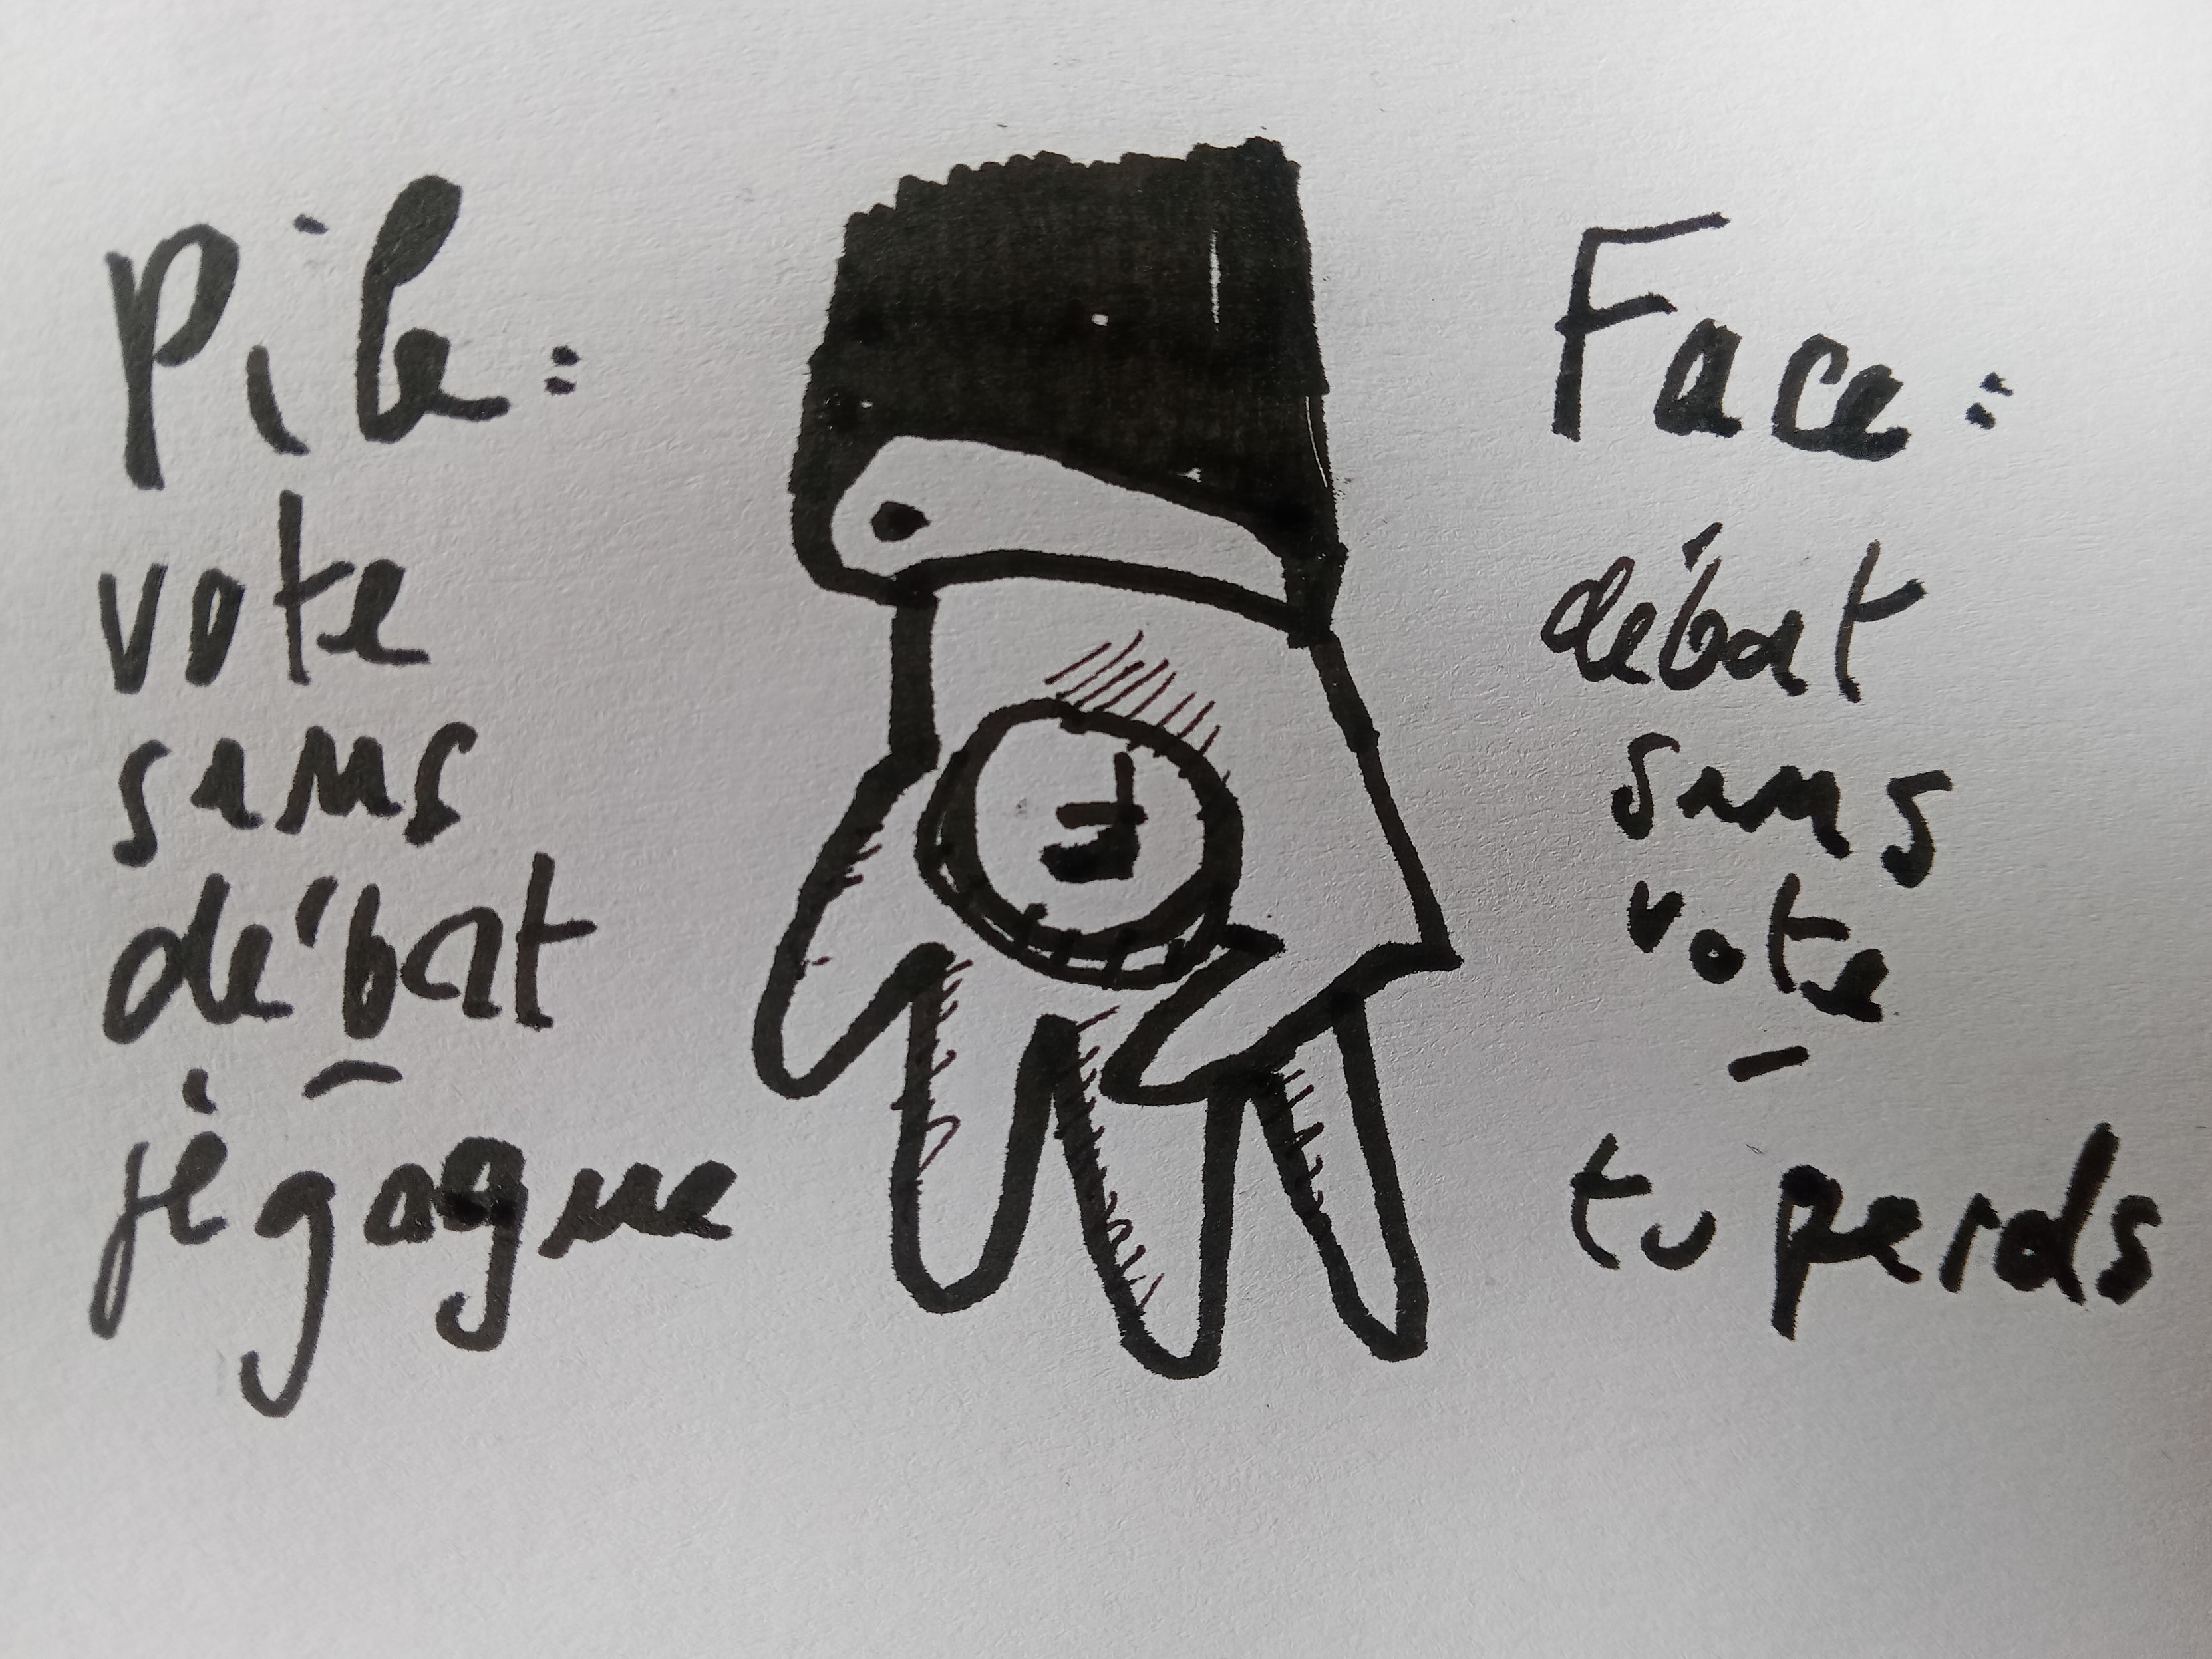 Pile :
vote
sans
débat
–
je gagne
F
Face :
débat
sans
vote
–
tu perds